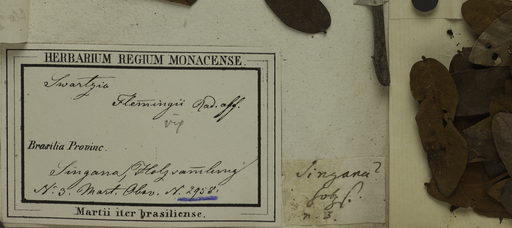 HERBARIUM REGIUM MONACENSE.
Swartzia
Flemingii Rad. aff.
Brasilia Provinc.
Singana, Holzsammlung
N. 3. Mart. Obsv. N. 2958.
Martii iter brasiliense.
Singana?
n. 3.